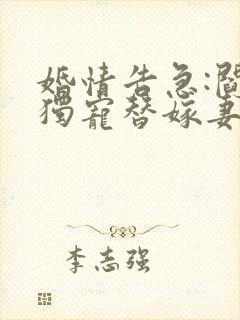 婚情告急:閻
獨寵替嫁妻
李志强